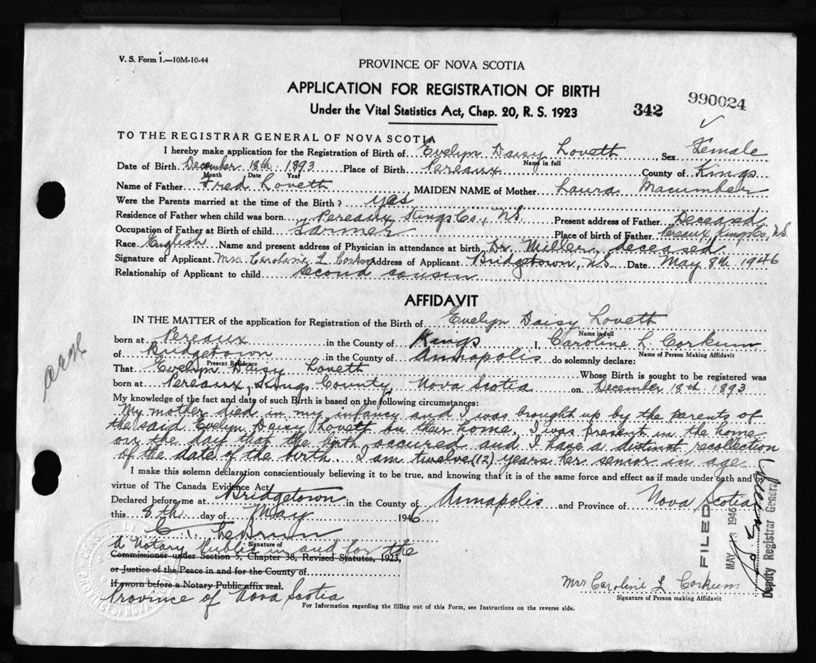 V. S. Form 1.—10M-10-44
PROVINCE OF NOVA SCOTIA
APPLICATION FOR REGISTRATION OF BIRTH
Under the Vital Statistics Act, Chap. 20, R. S. 1923
342
990024
TO THE REGISTRAR GENERAL OF NOVA SCOTIA
I hereby make application for the Registration of Birth of Evelyn Daisy Lovett, Sex Female
Name in full
Date of Birth December 18th 1893 Place of Birth Pereaux County of Kings
Month Date Year
Name of Father Fred Lovett MAIDEN NAME of Mother Laura Macumber
Were the Parents married at the time of the Birth? yes
Residence of Father when child was born Pereaux Kings Co., N.S. Present address of Father Deceased
Occupation of Father at Birth of child Farmer Place of birth of Father Pereaux, Kings Co., N.S.
Race English Name and present address of Physician in attendance at birth Dr. Miller, deceased
Signature of Applicant Mrs Caroline L Corkum Address of Applicant Bridgetown, N.S. Date May 8th 1946
Relationship of Applicant to child second cousin
AFFIDAVIT
IN THE MATTER of the application for Registration of the Birth of Evelyn Daisy Lovett
Name in full
born at Pereaux in the County of Kings I, Caroline L Corkum
Name of Person Making Affidavit
of Bridgetown in the County of Annapolis do solemnly declare:
Present Residence
That Evelyn Daisy Lovett Whose Birth is sought to be registered was
born at Pereaux, Kings County, Nova Scotia on December 18th 1893
My knowledge of the fact and date of such Birth is based on the following circumstances:
My mother died in my infancy and I was brought up by the parents of
the said Evelyn Daisy Lovett in their home. I was present in the home
on the day that the birth occured and I have a distinct recollection
of the date of the birth. I am twelve (12) years her senior in age
I make this solemn declaration conscientiously believing it to be true, and knowing that it is of the same force and effect as if made under oath and by
virtue of The Canada Evidence Act.
Declared before me at Bridgetown in the County of Annapolis and Province of Nova Scotia
this 8th day of May 1946
Signature of
A Notary Public in and for the
Commissioner under Section 5, Chapter 38, Revised Statutes, 1923,
or Justice of the Peace in and for the County of
If sworn before a Notary Public affix seal.
Province of Nova Scotia
Mrs Caroline L Corkum
Signature of Person making Affidavit
For Information regarding the filling out of this Form, see Instructions on the reverse side.
FILED
MAY 1946
Deputy Registrar General